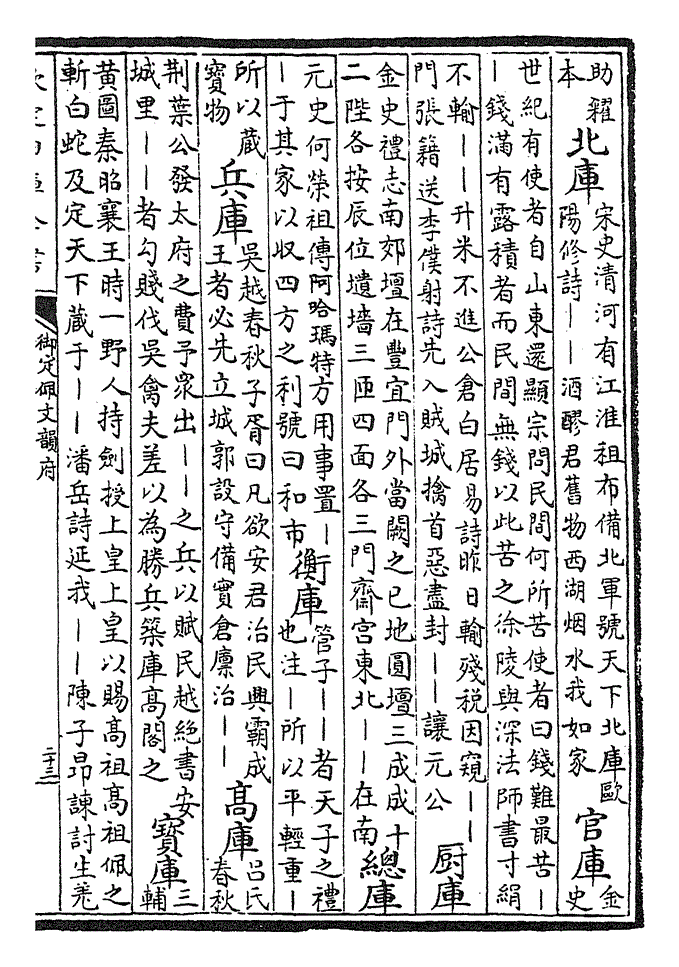 助糴
本
北庫
宋史清河有江淮租布備北軍號天下北庫歐
陽修詩——酒醪君舊物西湖烟水我如家
官庫
金
史
世紀有使者自山東還顯宗問民間何所苦使者曰錢難最苦—
—錢滿有露積者而民間無錢以此苦之徐陵與深法師書寸絹
不輸——升米不進公倉白居易詩昨日輸殘税因窺——
門張籍送李僕射詩先入賊城擒首惡盡封——讓元公
厨庫
金史禮志南郊壇在豐宜門外當闕之巳地圓壇三成成十
二陛各按辰位壝墻三匝四面各三門齋宫東北——在南
總庫
元史何榮祖傳阿哈瑪特方用事置—
—于其家以収四方之利號曰和市
衡庫
管子——者天子之禮
也注—所以平輕重—
所以蔵
寶物
兵庫
吳越春秋子胥曰凡欲安君治民興霸成
王者必先立城郭設守備實倉廩治——
高庫
吕氏
春秋
荆葉公發太府之費予衆出——之兵以賦民越絶書安
城里——者勾賤伐吳禽夫差以為勝兵築庫高閣之
寶庫
三
輔
黄圖秦昭襄王時一野人持劍授上皇上皇以賜高祖高祖佩之
斬白蛇及定天下蔵于——潘岳詩延我——陳子昂諫討生羌
欽定四庫全書
御定佩文韻府
二十三